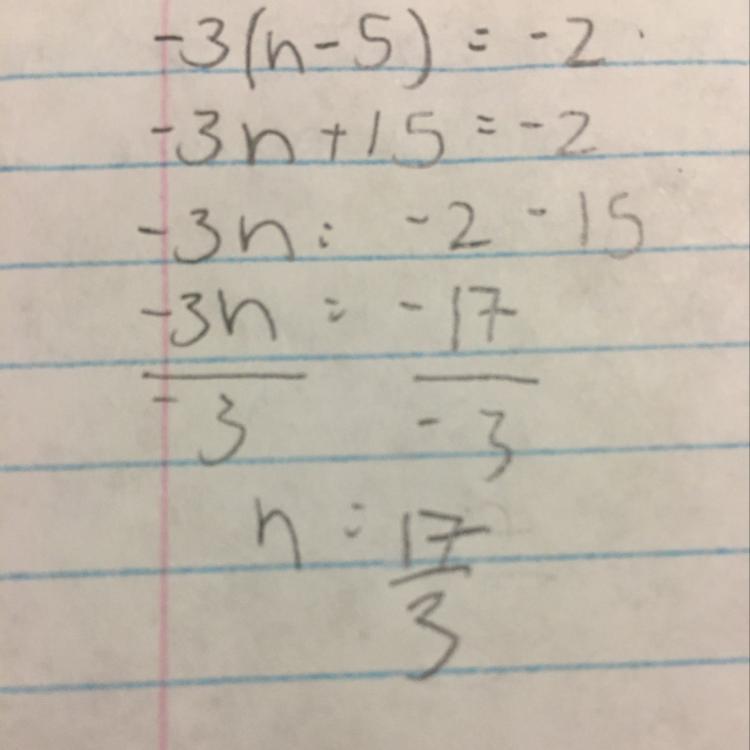 -3(n-5) = -2
-3n+15 = -2
-3n = -2 - 15
-3n = -17
-3 -3
n = 17
3